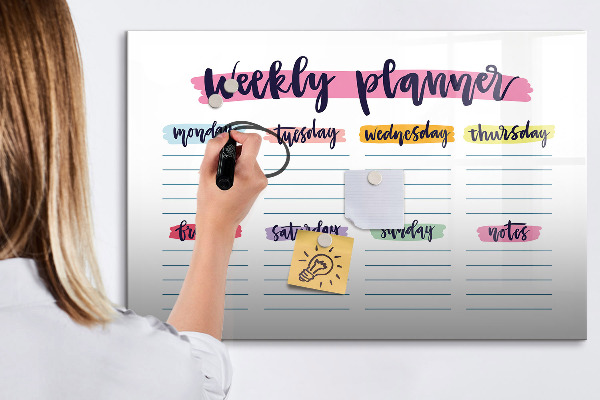 weekly planner
monday tuesday wednesday thursday
saturday sunday notes